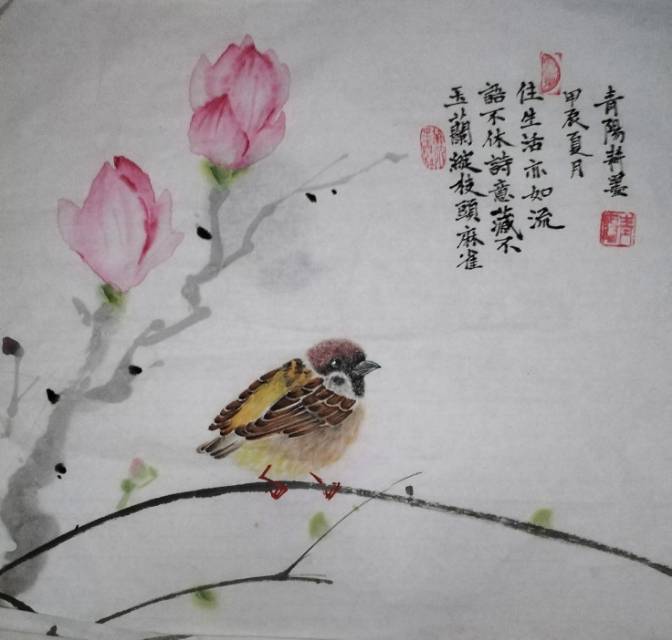 玉蘭綻枝頭麻雀
語不休詩意藏不
住生活亦如流
甲辰夏月
青陽耕墨